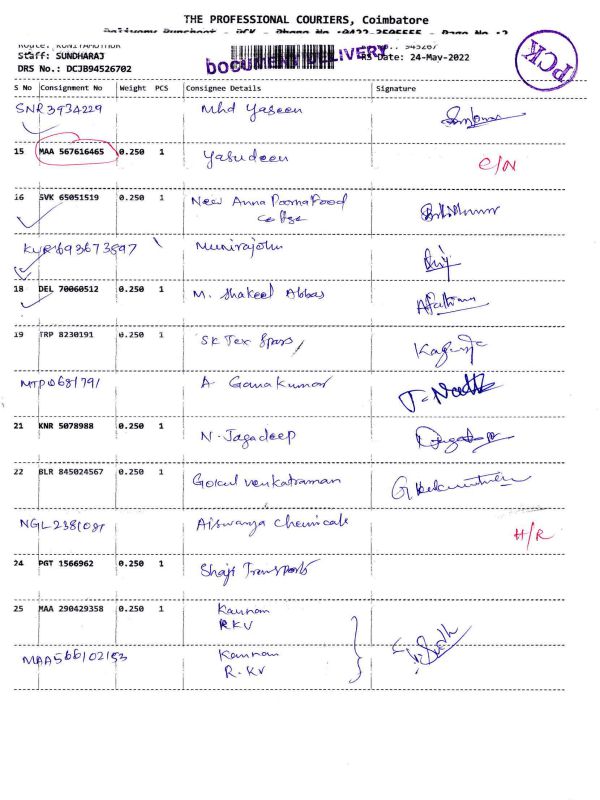 THE PROFESSIONAL COURIERS, Coimbatore
Delivery Runsheet - PCK - Phone No :0422-3505555 - Page No :2
Route: KUNIYAMUTHUR
Staff: SUNDHARAJ
DRS No.: DCJB94526702
DOCUMENT DELIVERY
DRS Date: 24-May-2022
PCK
S No Consignment No Weight PCS Consignee Details Signature
SNR3934229 Mhd Yaseen
15 MAA 567616465 0.250 1 Yasudeen C/N
16 SVK 65051519 0.250 1 New Anna Poorna Food
KYR693673897 \ Munirajohn
18 DEL 70060512 0.250 1 M. Shakeel Abbas
19 TRP 8230191 0.250 1 SK Tex Spars
MTP0681791 A Gana Kumar
21 KNR 5078988 0.250 1 N. Jagadeep
22 BLR 845024567 0.250 1 Gokul Venkatraman
NGL2381081 Aiswarya Chemicals H/R
24 PGT 1566962 0.250 1 Shaji Transports
25 MAA 290429358 0.250 1 Kannan
RKV
MAA566102153 Kannan
R.KV